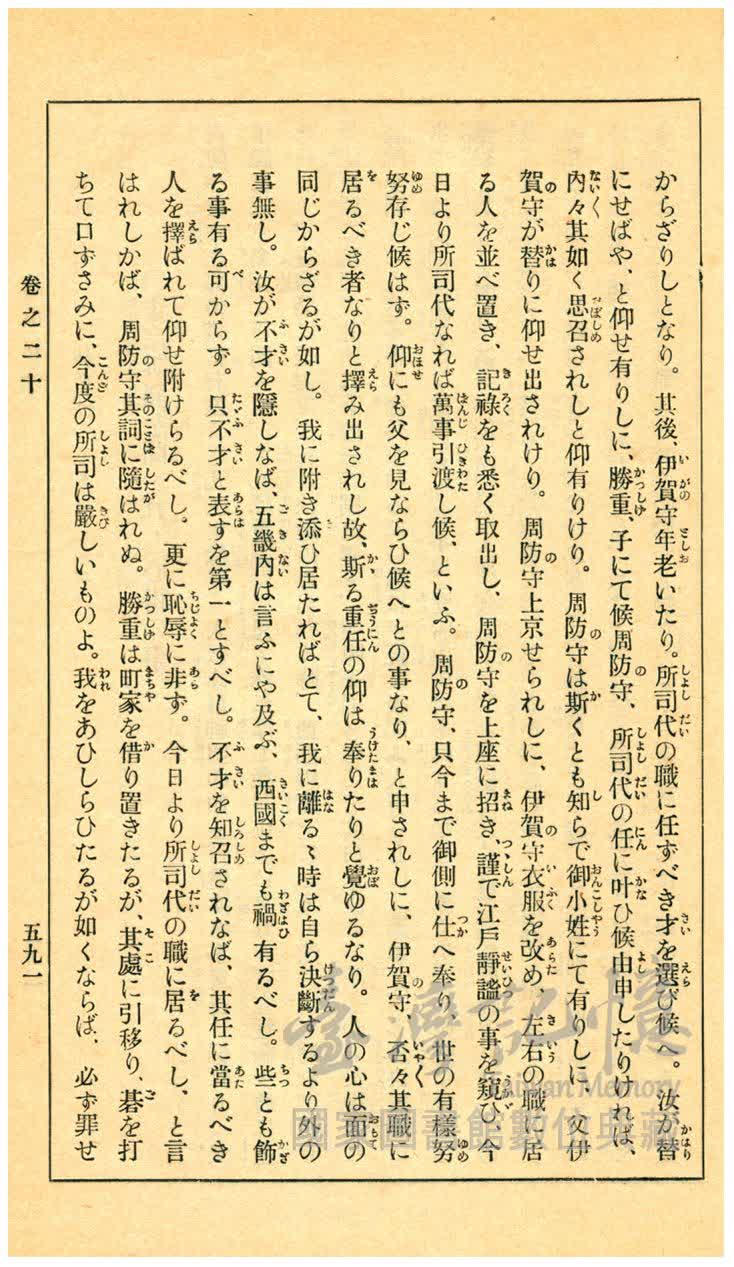 からざりしとなり。其後、伊賀守年老いたり。所司代の職に任ずべき才を選び候へ。汝が替
にせばや、と仰せ有りしに、勝重、子にて候周防守、所司代の任に叶ひ候由申したりければ、
內々其如く思召されしと仰有りけり。周防守は斯くとも知らで御小姓にて有りしに、父伊
賀守が替りに仰せ出されけり。周防守上京せられしに、伊賀守衣服を改め、左右の職に居
る人を並べ置き、記祿をも悉く取出し、周防守を上座に招き、謹で江戶靜謐の事を窺ひ、今
日より所司代なれば萬事引渡し候、といふ。周防守、只今まで御側に仕へ奉り、世の有樣努
努存じ候はず。仰にも父を見ならひ候へとの事なり、と申されしに、伊賀守、否々其職に
居るべき者なりと擇み出されし故、斯る重任の仰は奉りたりと覺ゆるなり。人の心は面の
同じからざるが如し。我に附き添ひ居たればとて、我に離るゝ時は自ら決斷するより外の
事無し。汝が不才を隱しなば、五畿內は言ふにや及ぶ、西國までも禍有るべし。些とも飾
る事有る可からず。只不才と表すを第一とすべし。不才を知召されなば、其任に當るべき
人を擇ばれて仰せ附けらるべし。更に恥辱に非ず。今日より所司代の職に居るべし、と言
はれしかば、周防守其詞に隨はれぬ。勝重は町家を借り置きたるが、其處に引移り、碁を打
ちて口ずさみに、今度の所司は嚴しいものよ。我をあひしらひたるが如くならば、必ず罪せ
卷之二十
五九一
臺灣記憶
Taiwan Memory
國家圖書館數位典藏